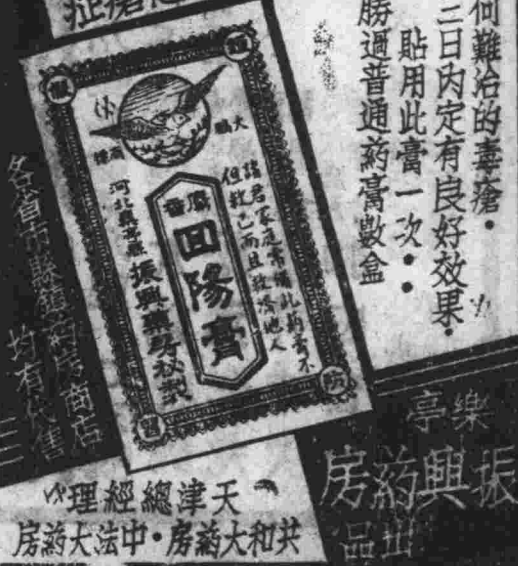 何難治的毒瘡．
三日內定有良好效果．
貼用此膏一次．．
勝過普通葯膏數盒
大鵬
商標
諸君家庭常備此葯膏不
但救己而且救濟他人
回陽膏
振興藥房秘製
各省市縣鎮葯房商店
均有代售
樂亭
振興葯房
出品
天津總經理
共和大葯房．中法大葯房